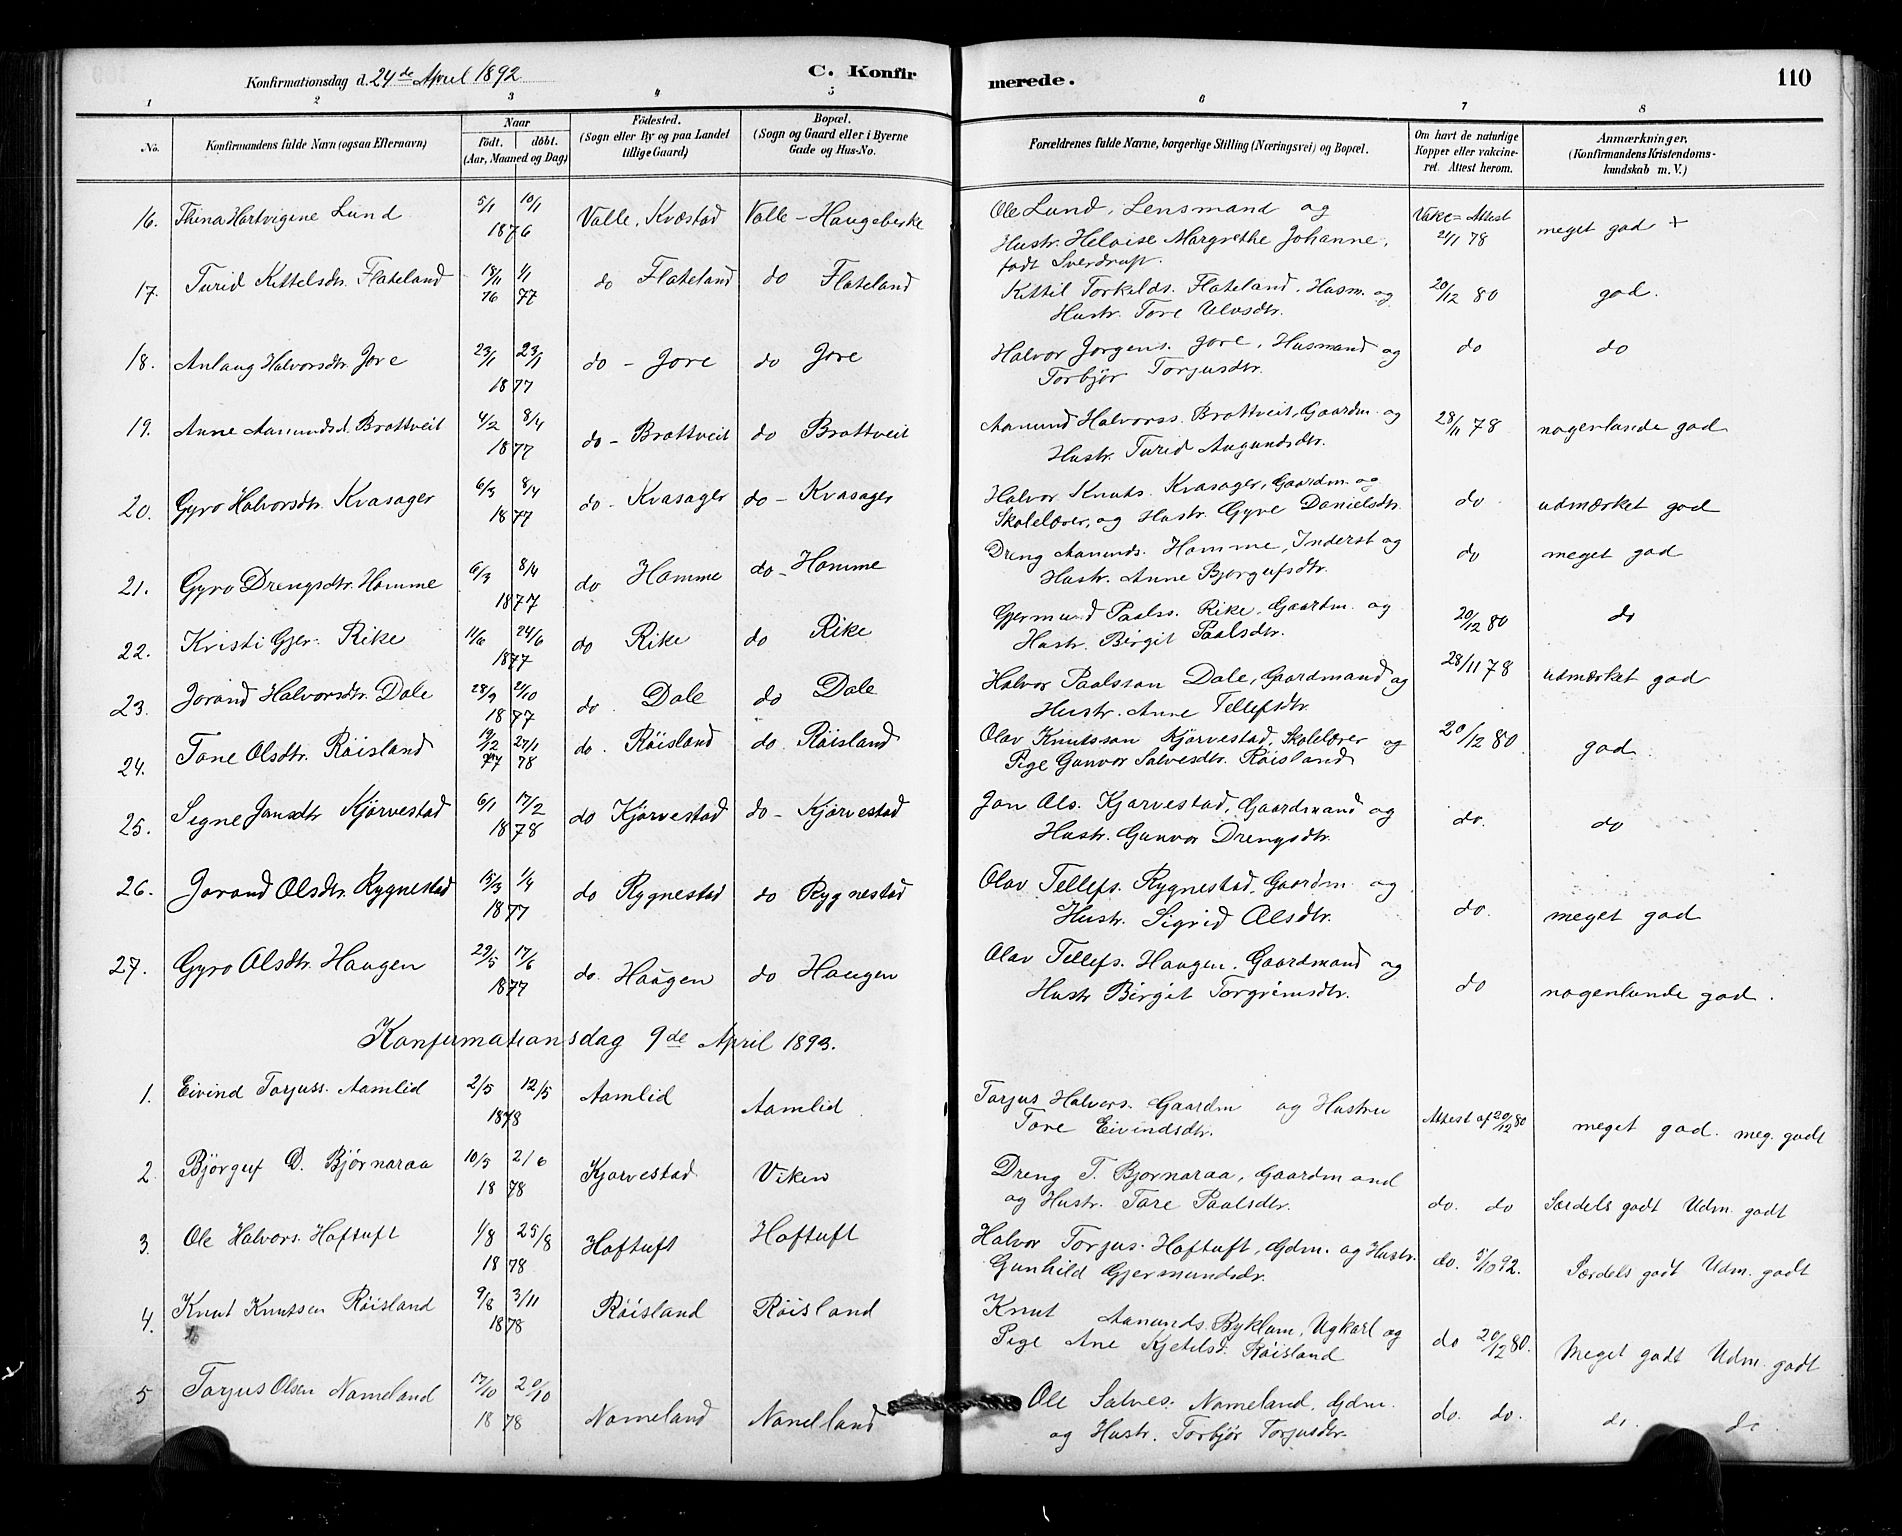 Konfirmationsdag d. 24de April 1892
C. Konfirmerede.
110
1 2 3 4 5 6 7 8
No.
Konfirmandens fulde Navn (ogsaa Efternavn)
Naar
födt. döbt.
(Aar, Maaned og Dag)
Födested.
(Sogn eller By og paa Landet
tillige Gaard)
Bopæl.
(Sogn og Gaard eller i Byerne
Gade og Hus-No.
Forældrenes fulde Navne, borgerlige Stilling (Næringsvei) og Bopæl.
Om havt de naturlige
Kopper eller vakcine-
ret. Attest herom.
Anmærkninger,
(Konfirmandens Kristendoms-
kundskab m. V.)
16. Thina Hartvigine Lund 5/1 10/1 1876 Valle, Kvæstad Valle - Haugebirke
Ole Lund, Lensmand og
Hustr. Heloise Margrethe Johanne,
født Sverdrup.
Vakc= Attest
24/1 78
meget god +
17. Turid Kittelsdtr. Flateland 18/11 76 1/1 77 do Flateland do Flateland
Kittil Torkelds. Flateland. Husm. og
Hustr. Tore Ulvsdtr.
20/12 80 god.
18. Anlaug Halvorsdtr. Jore 23/1 23/1 1877 do - Jore do Jore
Halvor Jorgens. Jore, Husmand og
Torbjør Torjusdtr.
do do
19. Anne Aamundsd. Brottveit 4/2 8/4 1877 do - Brottveit do Brottveit
Aamund Halvorss. Brottveit, Gaardm. og
Hustr. Turid Augundsdtr.
28/11 78 nogenlunde god
20. Gyro Halvorsdtr. Kvasager 6/3 8/4 1877 do - Kvasager do - Kvasager
Halvor Knuts. Kvasager, Gaardm. og
Skolelærer, og Hustr. Gyve Danielsdtr.
do udmærket god
21. Gyro Drengsdtr. Homme 6/3 8/4 1877 do Homme do - Homme
Dreng Aamunds. Homme, Inderst og
Hustr. Anne Bjorgufsdtr.
do meget god
22. Kristi Gjer. Rike 11/6 24/6 1877 do Rike do Rike
Gjermund Paalss. Rike, Gaardm. og
Hustr. Birgit Paalsdtr.
20/12 80 do
23. Jorand Halvorsdtr. Dale 28/9 21/10 1877 do. Dale do Dale
Halvor Paalsson Dale, Gaardmand og
Hustr. Anne Tellefsdtr.
28/11 78 udmærket god
24. Tone Olsdtr. Röisland 19/12 77 27/1 78 do. Röisland do. Röisland
Olav Knutsson Kjörvestad, Skolelærer og
Pige Gunvor Salvesdtr. Röisland
20/12 80 god
25. Signe Jonsdtr Kjörvestad 6/1 17/2 1878 do Kjörvestad do - Kjörvestad
Jon Ols. Kjorvestad, Gaardmand og
Hustr. Gunvor Drengsdtr.
do. do
26. Jorand Olsdtr. Rygnestad 15/3 1/4 1877 do Rygnestad do Rygnestad
Olav Tellefs. Rygnestad, Gaardm. og
Hustr. Sigrid Olsdtr.
do. meget god
27. Gyro Olsdtr. Haugen 29/5 17/6 1877 do. Haugen do Haugen
Olav Tellefs. Haugen. Gaardmand og
Hustr Birgit Torgrimsdtr.
do nogenlunde god.
Konfirmationsdag 9de April 1893.
1. Eivind Torjuss. Aamlid 2/5 12/5 1878 Aamlid Aamlid
Torjus Halvors. Gaardm og Hustru
Tore Eivindsdtr.
Attest af 20/12 80 meget god. meg. godt
2. Björguf D. Björnaraa 10/5 2/6 1878 Kjorvestad Viken
Dreng T. Bjornaraa, Gaardmand
og Hustr. Tore Paalsdtr.
do. do Særdels godt Udm. godt
3. Ole Halvors. Hoftuft 1/8 25/8 1878 Hoftuft Hoftuft
Halvor Torjus. Hoftuft, Gdm. og Hustr.
Gunhild Gjermundsdr.
do. 5/10 92. Særdels godt Udm. godt
4. Knut Knutsen Röisland 9/8 3/11 1878 Röisland Röisland
Knut Aanunds. Byklum, Ugkarl og
Pige Ane Kjetilsd. Röisland
do 20/12 80. Meget godt Udm. godt
5 Torjus Olsen Nomeland 17/10 20/10 1878 Nomeland Nomelland
Ole Salves. Nomeland, Gdm.
og Hustr. Torbjör Torjusdtr.
do. do. do. do.